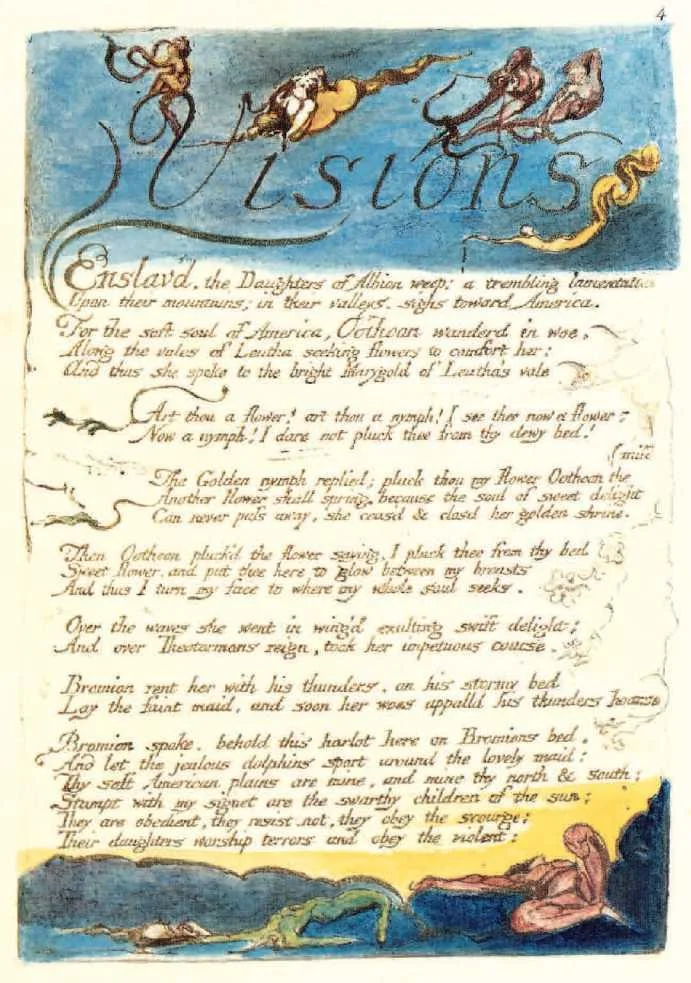 4
Visions
Enslav'd, the Daughters of Albion weep: a trembling lamentation
Upon their mountains; in their valleys. sighs toward America.
For the soft soul of America, Oothoon wanderd in woe,
Along the vales of Leutha seeking flowers to comfort her;
And thus she spoke to the bright Marygold of Leutha's vale
Art thou a flower! art thou a nymph! I see thee now a flower;
Now a nymph! I dare not pluck thee from thy dewy bed!
(mild
The Golden nymph replied; pluck thou my flower Oothoon the
Another flower shall spring, because the soul of sweet delight
Can never pass away. she ceas'd & clos'd her golden shrine.
Then Oothoon pluck'd the flower saying, I pluck thee from thy bed
Sweet flower. and put thee here to glow between my breasts
And thus I turn my face to where my whole soul seeks.
Over the waves she went in wing'd exulting swift delight;
And over Theotormons reign, took her impetuous course.
Bromion rent her with his thunders. on his stormy bed
Lay the faint maid, and soon her woes appalld his thunders hoarse
Bromion spoke. behold this harlot here on Bromions bed.
And let the jealous dolphins sport around the lovely maid;
Thy soft American plains are mine, and mine thy north & south:
Stampt with my signet are the swarthy children of the sun;
They are obedient, they resist not, they obey the scourge;
Their daughters worship terrors and obey the violent: